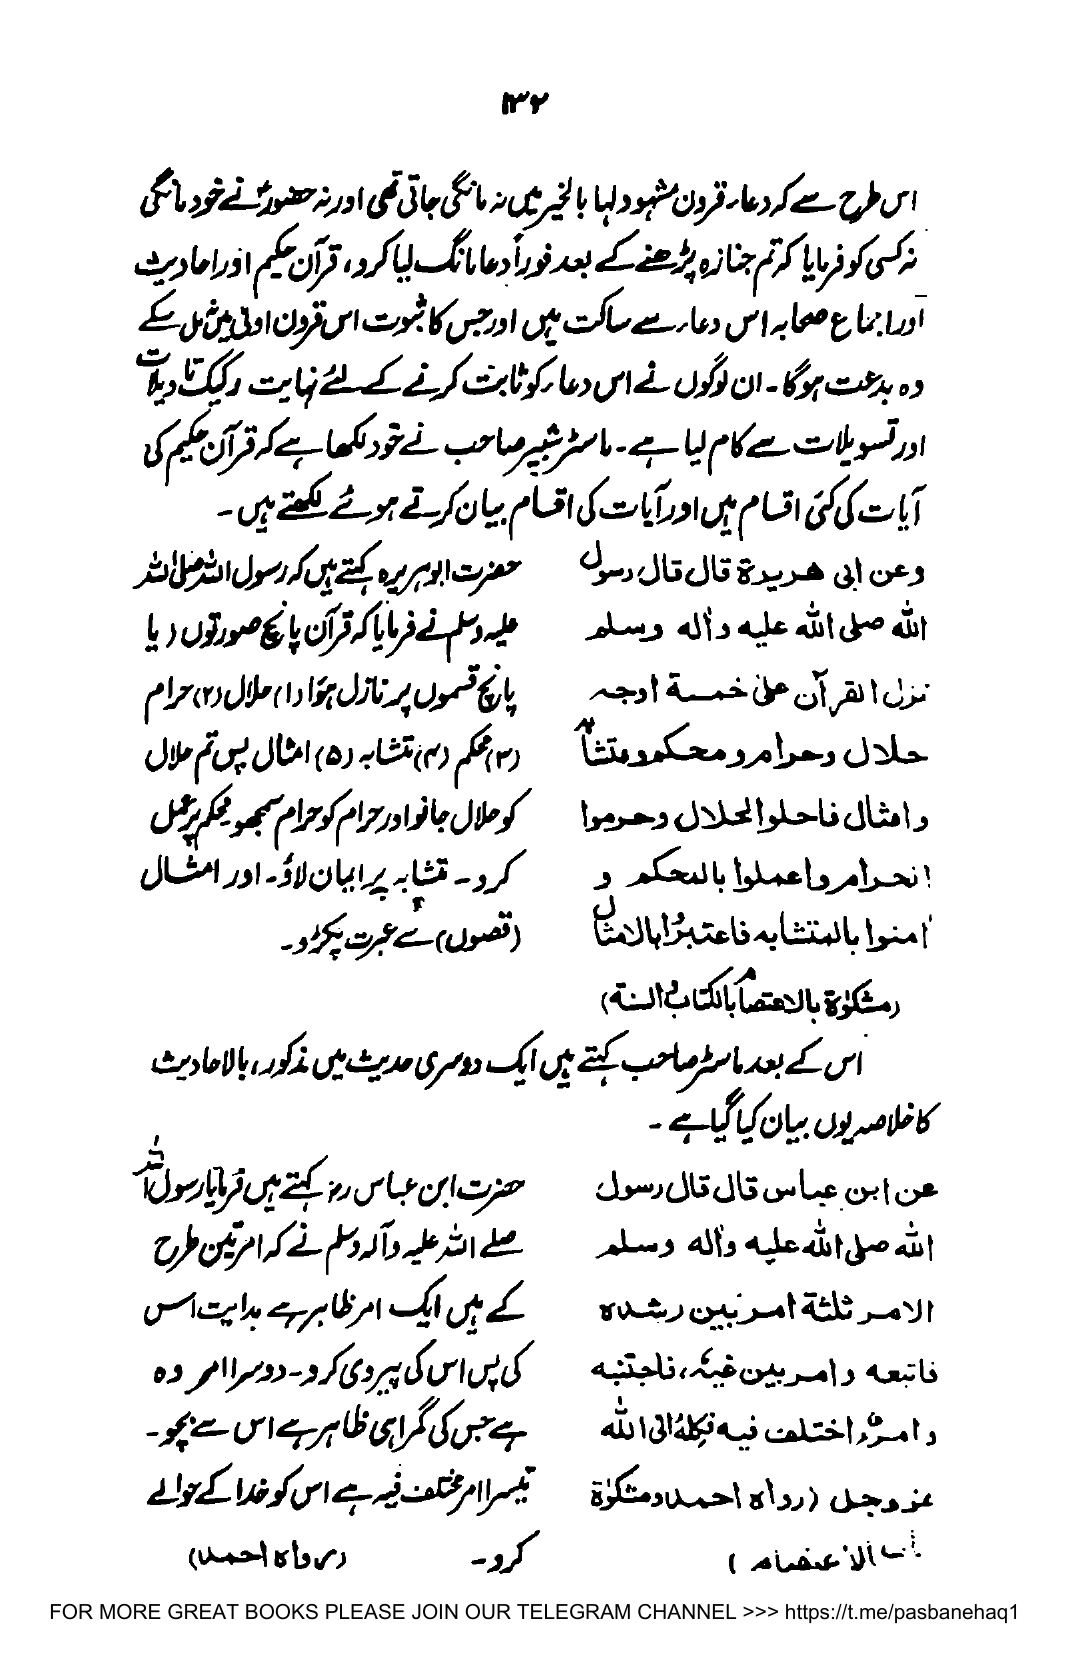 ۱۳۲
اس طرح سے کہ دعاء قرون مشہود لہا بالخیر میں نہ مانگی جاتی تھی اور نہ حضورؐ نے خود مانگی
نہ کسی کو فرمایا کہ تم جنازہ پڑھنے کے بعد فوراً دعا مانگ لیا کرو، قرآن حکیم اور احادیث
اور اجماع صحابہ اس دعاء سے ساکت ہیں اور جس کا ثبوت اس قرون اولیٰ میں نہ مل سکے
وہ بدعت ہوگا۔ ان لوگوں نے اس دعاء کو ثابت کرنے کے لئے نہایت رکیک تاویلات
اور تسویلات سے کام لیا ہے۔ ماسٹر شبیر صاحب نے خود لکھا ہے کہ قرآن حکیم کی
آیات کی کئی اقسام ہیں اور آیات کی اقسام بیان کرتے ہوئے لکھتے ہیں۔
وعن ابی ھریرة قال قال رسول
الله صلی الله علیه واٰله وسلم
نزل القرآن علیٰ خمسة اوجہ
حلال وحرام ومحکم ومتشابہ
وامثال فاحلوا الحلال وحرموا
الحرام واعملوا بالمحکم و
اٰمنوا بالمتشابه فاعتبرُوا بالامثال
(مشکوٰة بالاعتصام بالکتاب والسنة)
حضرت ابو ہریرہ کہتے ہیں کہ رسول اللہ صلی اللہ
علیہ وسلم نے فرمایا کہ قرآن پانچ صورتوں (یا
پانچ قسموں پر نازل ہؤا (۱) حلال (۲) حرام
(۳) محکم (۴) متشابہ (۵) امثال پس تم حلال
کو حلال جانو اور حرام کو حرام سمجھو۔ محکم پر عمل
کرو۔ متشابہ پر ایمان لاؤ۔ اور امثال
(قصوں) سے عبرت پکڑو۔
اس کے بعد ماسٹر صاحب کہتے ہیں ایک دوسری حدیث میں مذکورہ بالا احادیث
کا خلاصہ یوں بیان کیا گیا ہے۔
عن ابن عباس قال قال رسول
الله صلی الله علیه واٰله وسلم
الامر ثلثة امر بین رشدہ
فاتبعه وامر بین غیّہ، فاجتنبه
وامرٌ اختلف فیه فکِلهُ الی الله
عزوجل (رواہ احمد ومشکوٰة
باب الاعتصام)
حضرت ابن عباس رضؓ کہتے ہیں فرمایا رسول اللہ
صلے اللہ علیہ وآلہ وسلم نے کہ امر تین طرح
کے ہیں ایک امر ظاہر ہے ہدایت اس
کی پس اس کی پیروی کرو۔ دوسرا امر وہ
ہے جس کی گمراہی ظاہر ہے اس سے بچو۔
تیسرا امر مختلف فیہ ہے اس کو خدا کے حوالے
کرو۔ (رواہ احمد)
FOR MORE GREAT BOOKS PLEASE JOIN OUR TELEGRAM CHANNEL >>> https://t.me/pasbanehaq1